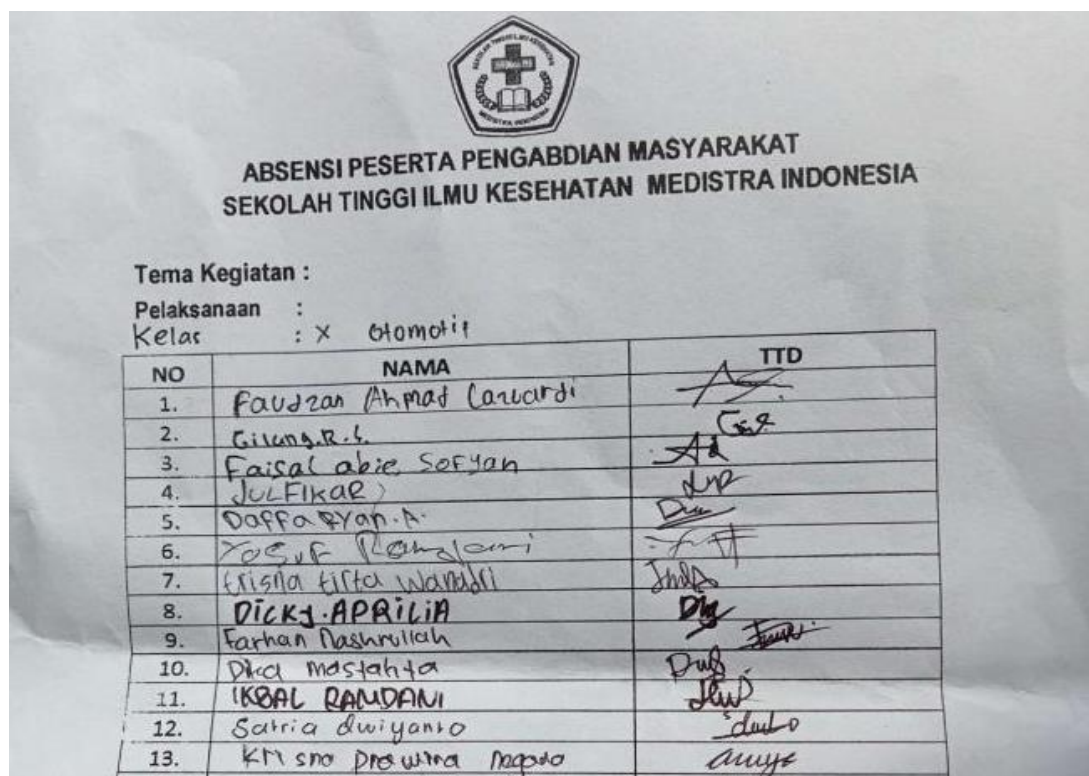 SEKOLAH TINGGI ILMU KESEHATAN
MEDISTRA INDONESIA
ABSENSI PESERTA PENGABDIAN MASYARAKAT
SEKOLAH TINGGI ILMU KESEHATAN MEDISTRA INDONESIA
Tema Kegiatan :
Pelaksanaan :
Kelas : X Otomotif
NO NAMA TTD
1. Faudzan Ahmad
2. Gilang.R.S.
3. Faisal abie Sofyan
4. JULFIKAR
5. Daffa RYan.A.
6. Yosuf Ramdani
7. trisna tirta
8. DICKY.APRILIA
9. Farhan Nashrullah
10. Dika
11. IKBAL RAMDANI
12. Satria dwiyanto
13. Krisna prawira